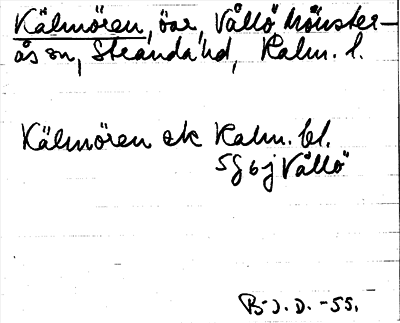 Kälmören, öar, Vållö, Mönster-
ås sn, Stranda hd, Kalm. l.
Kälmören ek Kalm. bl.
5G6j Vållö
B-J. D. -55.